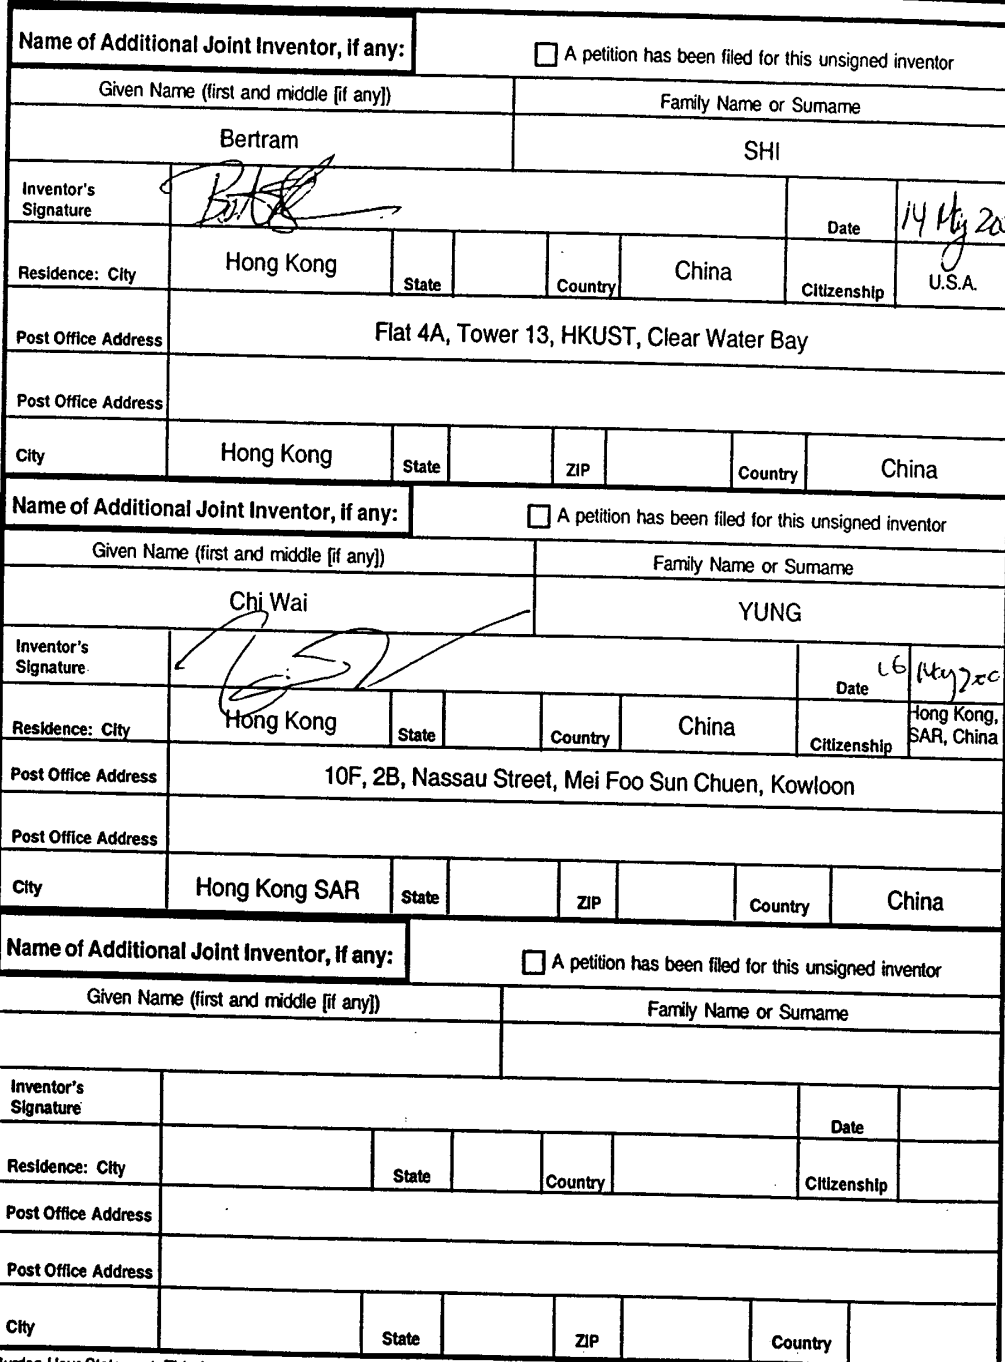 Name of Additional Joint Inventor, if any:
A petition has been filed for this unsigned inventor
Given Name (first and middle [if any])
Family Name or Surname
Bertram
SHI
Inventor's
Signature
Date
14 May
Residence: City
Hong Kong
State
Country
China
Citizenship
U.S.A.
Post Office Address
Flat 4A, Tower 13, HKUST, Clear Water Bay
Post Office Address
City
Hong Kong
State
ZIP
Country
China
Name of Additional Joint Inventor, if any:
A petition has been filed for this unsigned inventor
Given Name (first and middle [if any])
Family Name or Surname
Chi Wai
YUNG
Inventor's
Signature
Date
16 May
Residence: City
Hong Kong
State
Country
China
Citizenship
Hong Kong,
SAR, China
Post Office Address
10F, 2B, Nassau Street, Mei Foo Sun Chuen, Kowloon
Post Office Address
City
Hong Kong SAR
State
ZIP
Country
China
Name of Additional Joint Inventor, if any:
A petition has been filed for this unsigned inventor
Given Name (first and middle [if any])
Family Name or Surname
Inventor's
Signature
Date
Residence: City
State
Country
Citizenship
Post Office Address
Post Office Address
City
State
ZIP
Country